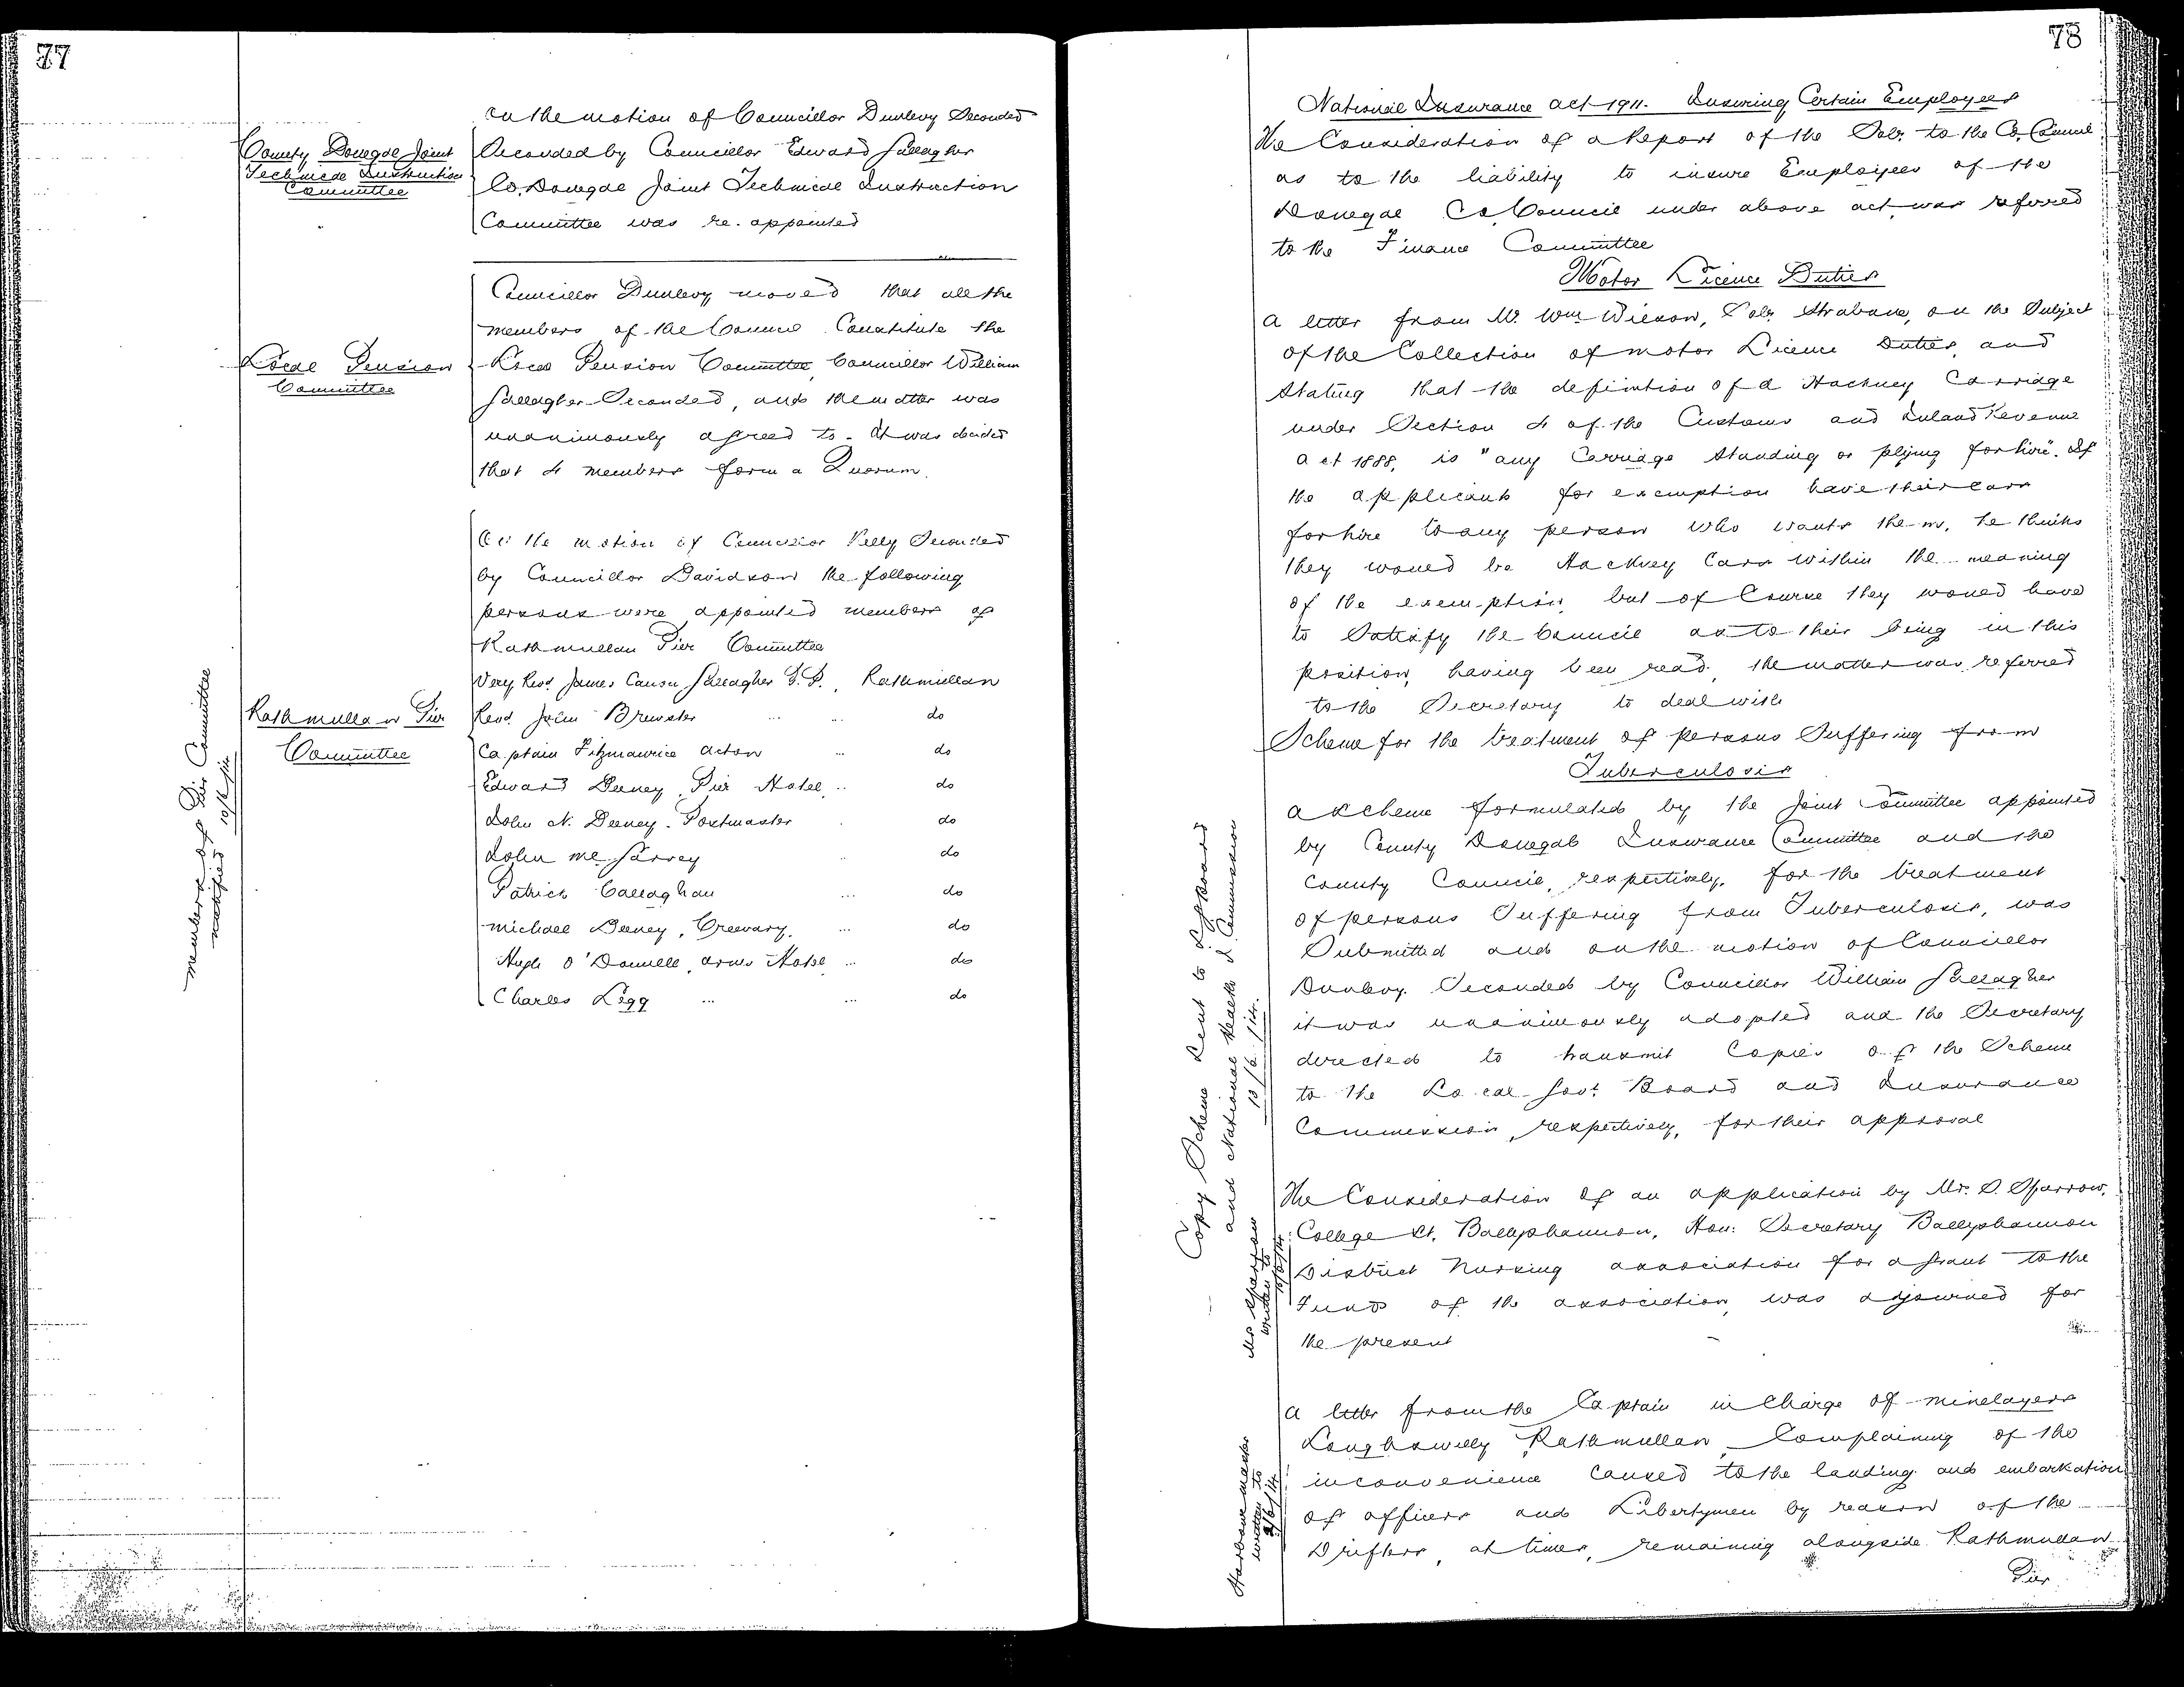 77
On the motion of Councillor Dunlevy Seconded
County Donegal Joint
Technical Instruction
Committee
Seconded by Councillor Edward Gallagher
Co. Donegal Joint Technical Instruction
Committee was re-appointed
Councillor Dunlevy moved that all the
members of the Council Constitute the
Local Pension
Committee
Local Pension Committee, Councillor William
Gallagher Seconded, and the matter was
unanimously agreed to. It was decided
that 4 members form a Quorum.
On the motion of Councillor Kelly Seconded
by Councillor Davidson the following
persons were appointed members of
Rathmullan Pier Committee
Very Revd. James Canon Gallagher P.P. Rathmullan
Rathmullan Pier
Committee
Revd. John Brewster ... ... do
Captain Fitzmaurice Acton ... do
Edward Deeney, Pier Hotel ... do
John N. Deeney. Postmaster do
John Mc Garvey do
Patrick Callaghan ... do
Michael Deeney, Creevary. ... do
Hugh O'Donnell, Arms Hotel ... do
Charles Legg ... ... do
members of Pier Committee
notified 10/6/14
78
National Insurance Act 1911. Insuring Certain Employees
The Consideration of a Report of the Solr. to the Co. Council
as to the liability to insure Employees of the
Donegal Co Council under above act, was referred
to the Finance Committee
Motor Licence Duties
A letter from Mr. Wm Wilson, Solr. Strabane, on the Subject
of the Collection of motor Licence Duties, and
Stating that the definition of a Hackney Carriage
under Section 4 of the Customs and Inland Revenue
Act 1888, is "any Carriage Standing or plying for hire". If
the applicants for exemption have their cars
for hire to any person who wants them, he thinks
they would be Hackney Cars within the meaning
of the exemption, but of Course they would have
to Satisfy the Council as to their being in this
position, having been read, the matter was referred
to the Secretary to deal with
Scheme for the treatment of persons Suffering from
Tuberculosis
A Scheme formulated by the Joint Committee appointed
by County Donegal Insurance Committee and the
County Council, respectively, for the treatment
of persons Suffering from Tuberculosis, was
Submitted and on the motion of Councillor
Dunlevy. Seconded by Councillor William Gallagher
it was unanimously adopted and the Secretary
directed to transmit Copies of the Scheme
to the Local Govt Board and Insurance
Commission, respectively, for their approval
Copy Scheme sent to L. G. Board
and National Health I. Commission
10/6/14.
The Consideration of an application by Mr. S. Sparrow,
College St. Ballyshannon, Hon: Secretary Ballyshannon
District Nursing association for a grant to the
Funds of the association, was adjourned for
the present
Mr Sparrow
written to
10/6/14
A letter from the Captain in Charge of minelayers
Loughswilly Rathmullan Complaining of the
inconvenience caused to the landing and embarkation
of officers and Libertymen by reason of the
Drifters, at times, remaining alongside Rathmullan
Pier
Harbour master
written to